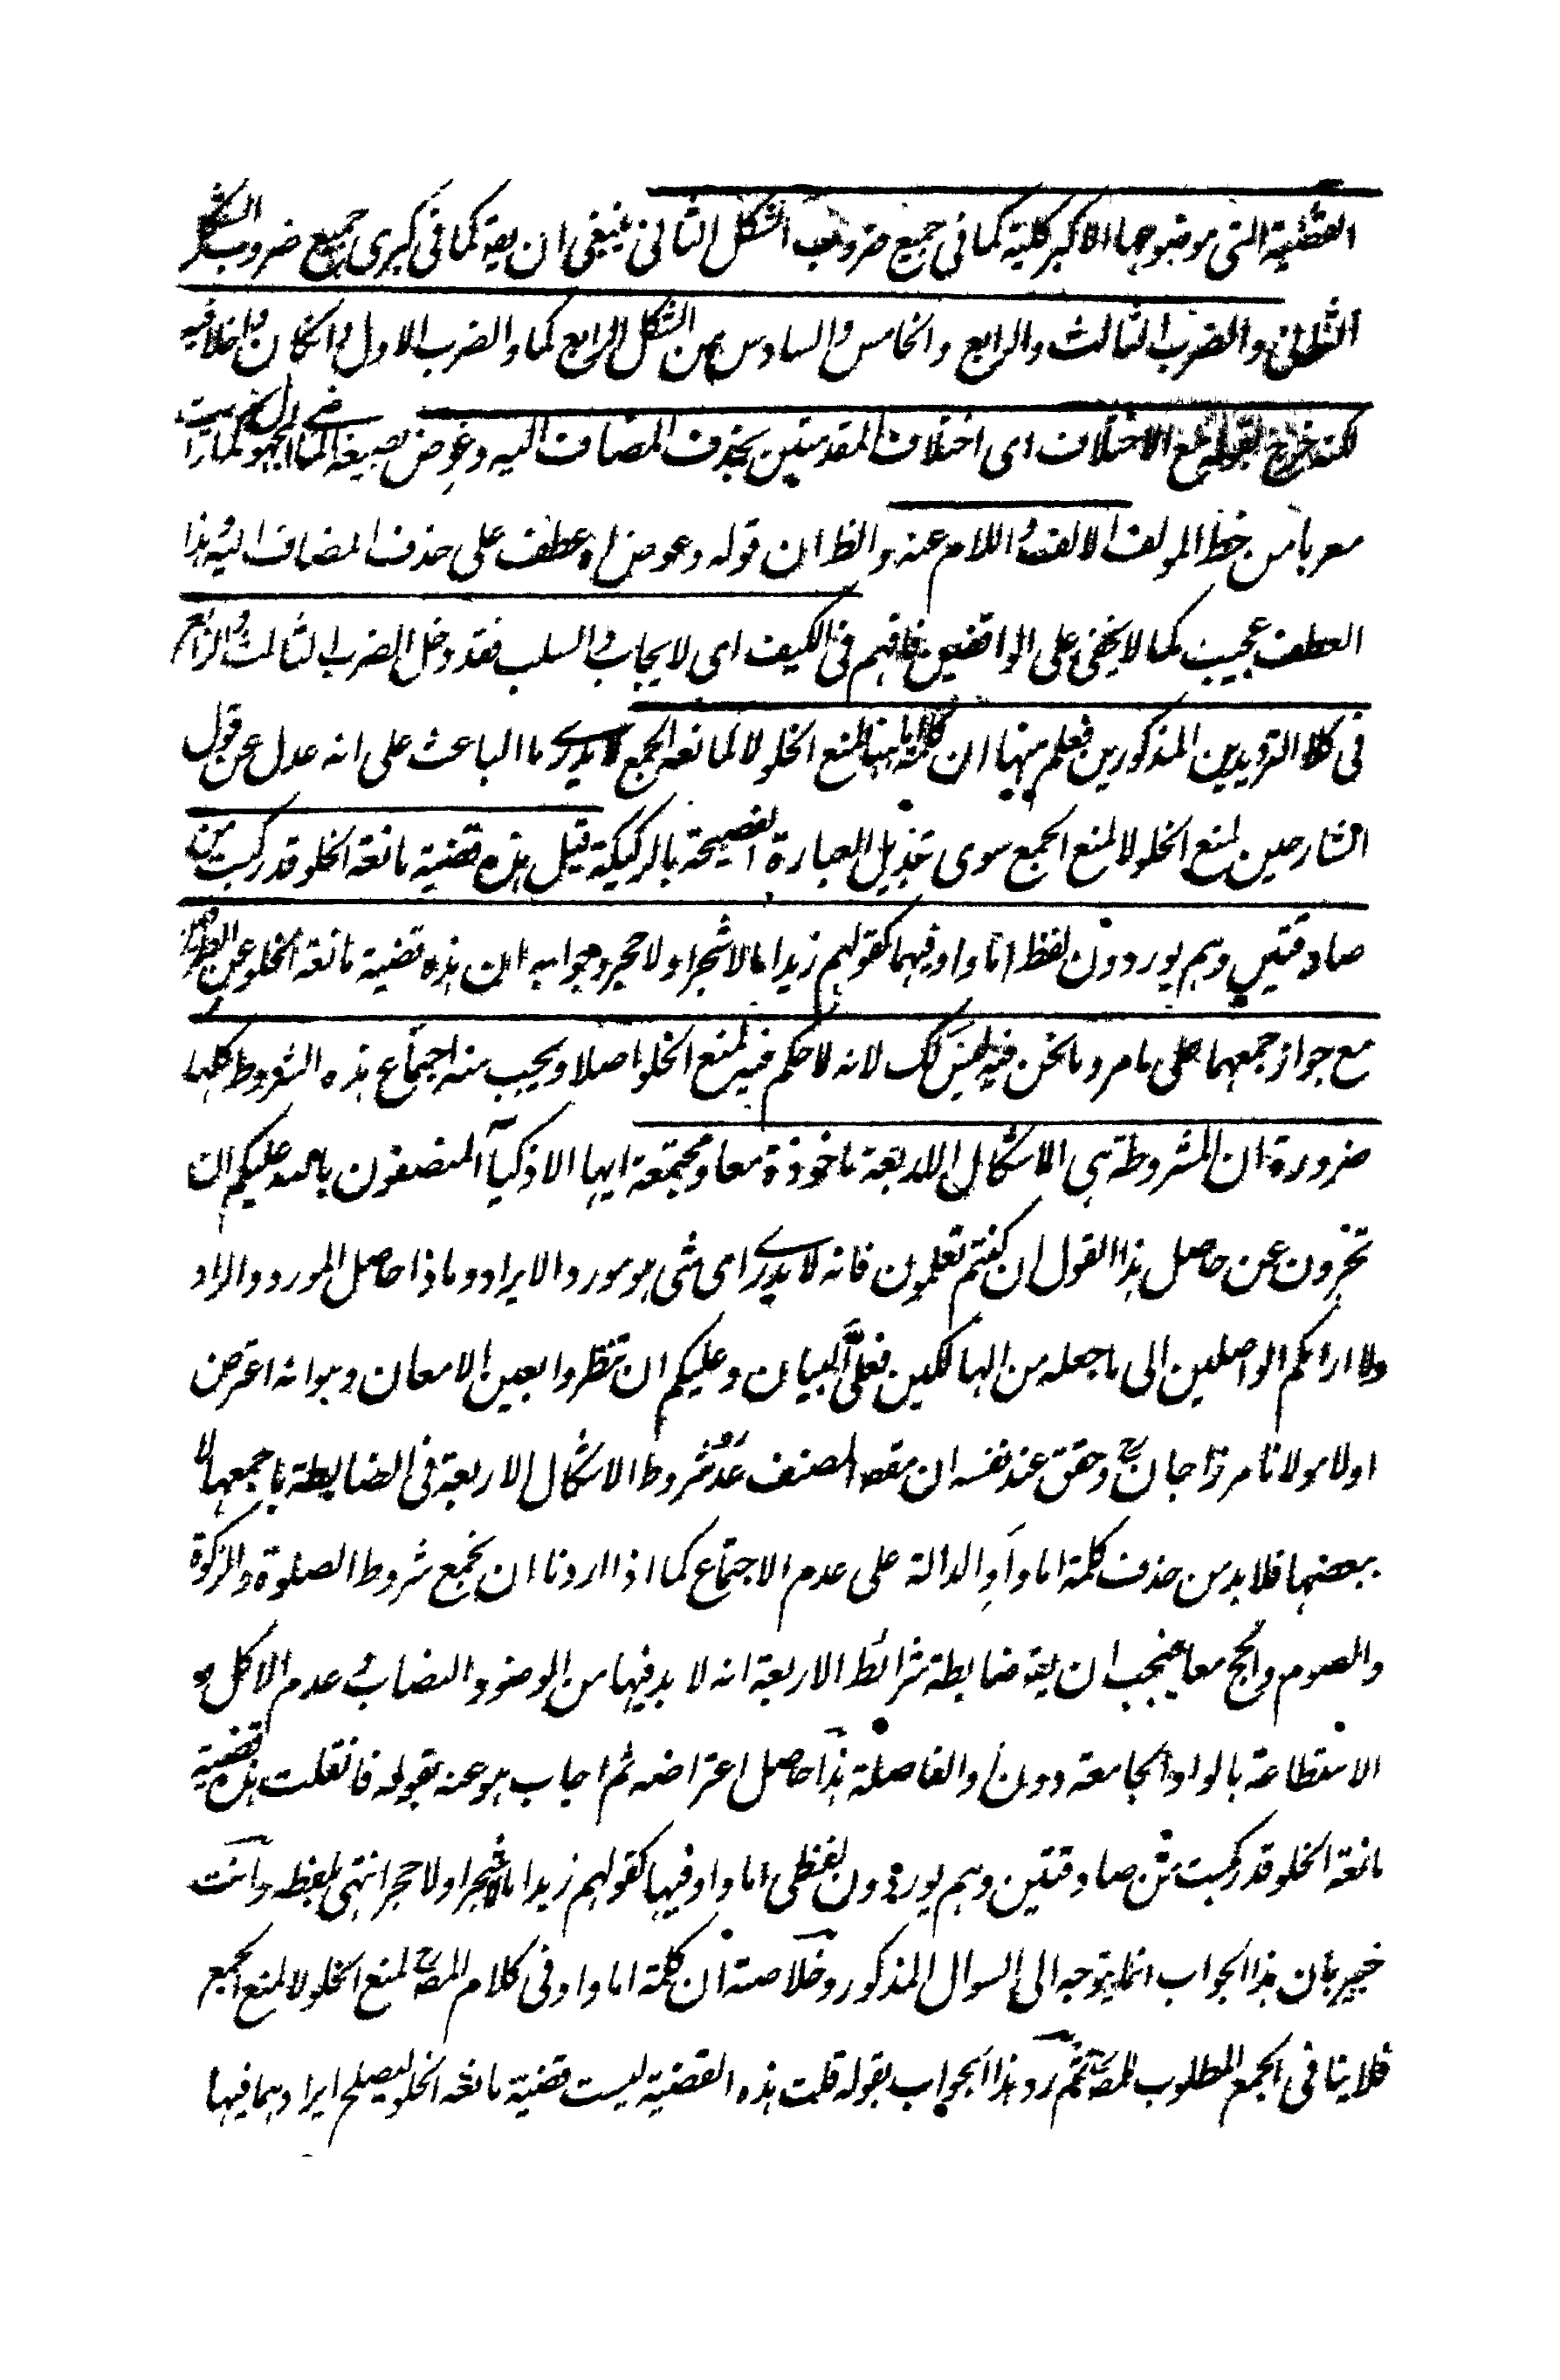 القضية التى موضوعها الاكبر كلية كما فى جميع ضروب الشكل الثانى ينبغى ان يقه كما فى كبرى جميع ضروب الشكل
الثانى والضرب الثالث والرابع والخامس والسادس من الشكل الرابع كما والضرب الاول وانكان داخلا فيه
لكنه خرج بقوله مع الاختلاف اى اختلاف المقدمتين بحذف المضاف اليه وعوض بصيغة الماضى المجهول كما رأيت
معربا من خط المولف الالف واللام عنه والظ ان قوله وعوض اه عطف على حذف المضاف اليه وهذا
العطف عجيب كما لا يخفى على الواقفين فافهم فى الكيف اى لايجاب والسلب فقد دخل الضرب الثالث والرابع
فى كلا الترديدين المذكورين فعلم منها ان كلمة اما ههنا لمنع الخلو لا لمانعه الجمع لا يدرى ما الباعث على انه عدل عن قول
الشارحين لمنع الخلو لا لمنع الجمع سوى تبديل العبارة الفصيحة بالركيكة قيل هذه قضية مانعة الخلو قد ركبت من
صادقتين وهم يوردون لفظ اما واو فيهما كقولهم زيد اما لا شجر او لا حجر وجوابه ان هذه قضية مانعة الخلو عن الطرفين
مع جواز جمعهما على ما مر وما نحن فيه ليس كك لانه لا حكم فيه لمنع الخلو اصلا ويجيب منه اجتماع هذه الشروط كلها
ضرورة ان المشروطة هى الاشكال الاربعة ماخوذة معا ومجتمعة ايها الاذكياء المنصفون بالله عليكم ان
تخبرون عن حاصل هذا القول ان كنتم تعلمون فانه لا يدرى اى شى هو مورد الايراد وماذا حاصل المورد والراد
ولا اراكم الواصلين الى ما جعله من الهالكين فعلىّ البيان وعليكم ان تنظروا بعين الامعان وهو انه اعترض
اولا مولانا مرزا جان رح وحقق عند نفسه ان مقصد المصنف عدّ شروط الاشكال الاربعة فى الضابطة باجمعها لا
ببعضها فلا بد من حذف كلمة اما واو الدالة على عدم الاجتماع كما اذا اردنا ان نجمع شروط الصلوة والزكوة
والصوم والحج معا فيجب ان يقه ضابطة شرائط الاربعة انه لا بد فيها من الوضو والنصاب و عدم الاكل و
الاستطاعة بالواو الجامعة دون او الفاصلة هذا حاصل اعتراضه ثم اجاب هو عنه بقوله فانقلت هذه قضية
مانعة الخلو قد ركبت من صادقتين وهم يوردون لفظى اما واو فيها كقولهم زيد اما لا شجر او لا حجر انتهى بلفظه وانت
خبير بان هذا الجواب انما يتوجه الى السوال المذكور وخلاصته ان كلمة اما واو فى كلام المصرح لمنع الخلو لا لمنع الجمع
فلا ينافى الجمع المطلوب للمصرح ثم رد هذا الجواب بقوله قلت هذه القضية ليست قضية مانعه الخلو ليصلح ايرادهما فيها